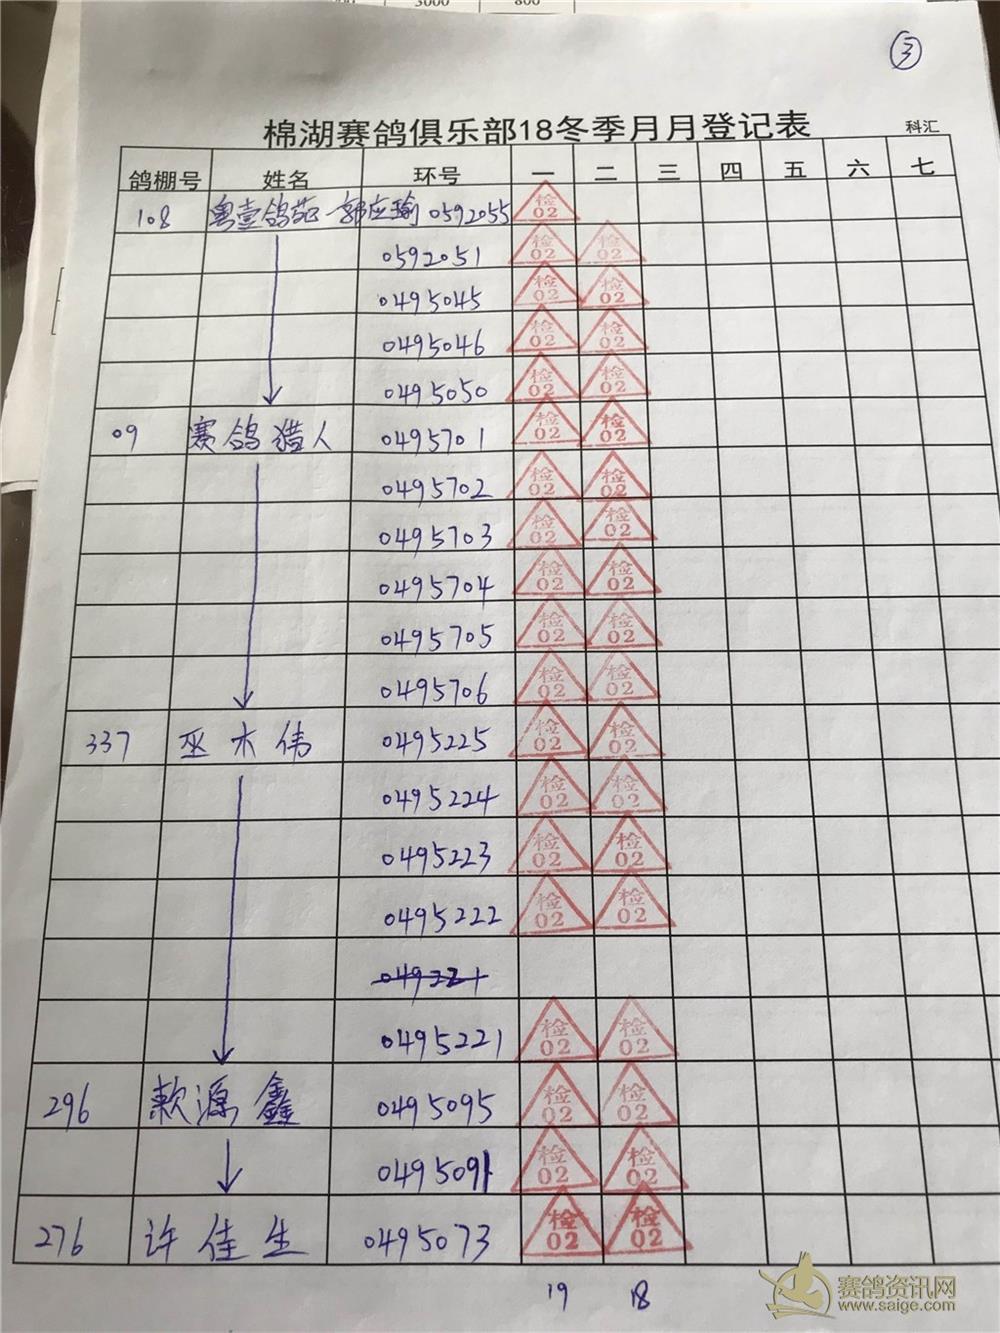 3000 800
3
棉湖赛鸽俱乐部18冬季月月登记表 科汇
鸽棚号 姓名 环号 一 二 三 四 五 六 七
108 粤壹鸽苑 郭应瑜 0592055 检02
0592051 检02 检02
0495045 检02 检02
0495046 检02 检02
0495050 检02 检02
09 赛鸽猎人 0495701 检02 检02
0495702 检02 检02
0495703 检02 检02
0495704 检02 检02
0495705 检02 检02
0495706 检02 检02
337 巫木伟 0495225 检02 检02
0495224 检02 检02
0495223 检02 检02
0495222 检02 检02
049221
0495221 检02 检02
296 源鑫 0495095 检02 检02
0495091 检02 检02
276 许佳生 0495073 检02 检02
19 18
赛鸽资讯网
www.saige.com